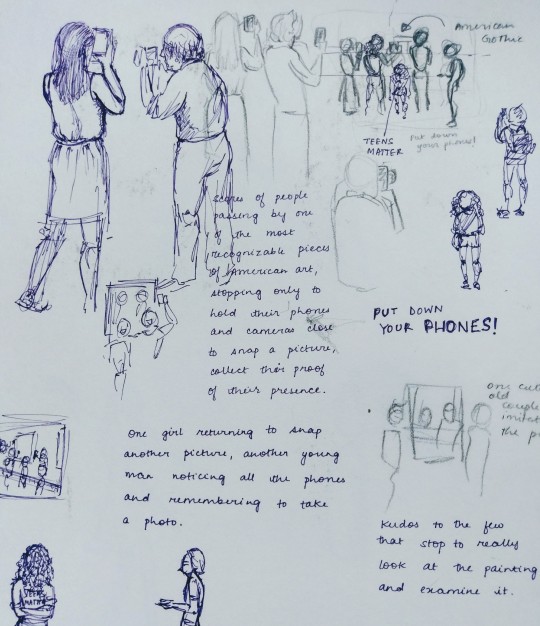 American
Gothic
TEENS
MATTER
Put down
your phones!
scores of people
passing by one
of the most
recognizable pieces
of American art,
stopping only to
hold their phones
and cameras close
to snap a picture,
collect their proof
of their presence.
PUT DOWN
YOUR PHONES!
one
old
couple
imitat
the p
One girl returning to snap
another picture, another young
man noticing all the phones
and remembering to take
a photo.
Kudos to the few
that stop to really
look at the painting
and examine it.
TEENS
MATTER